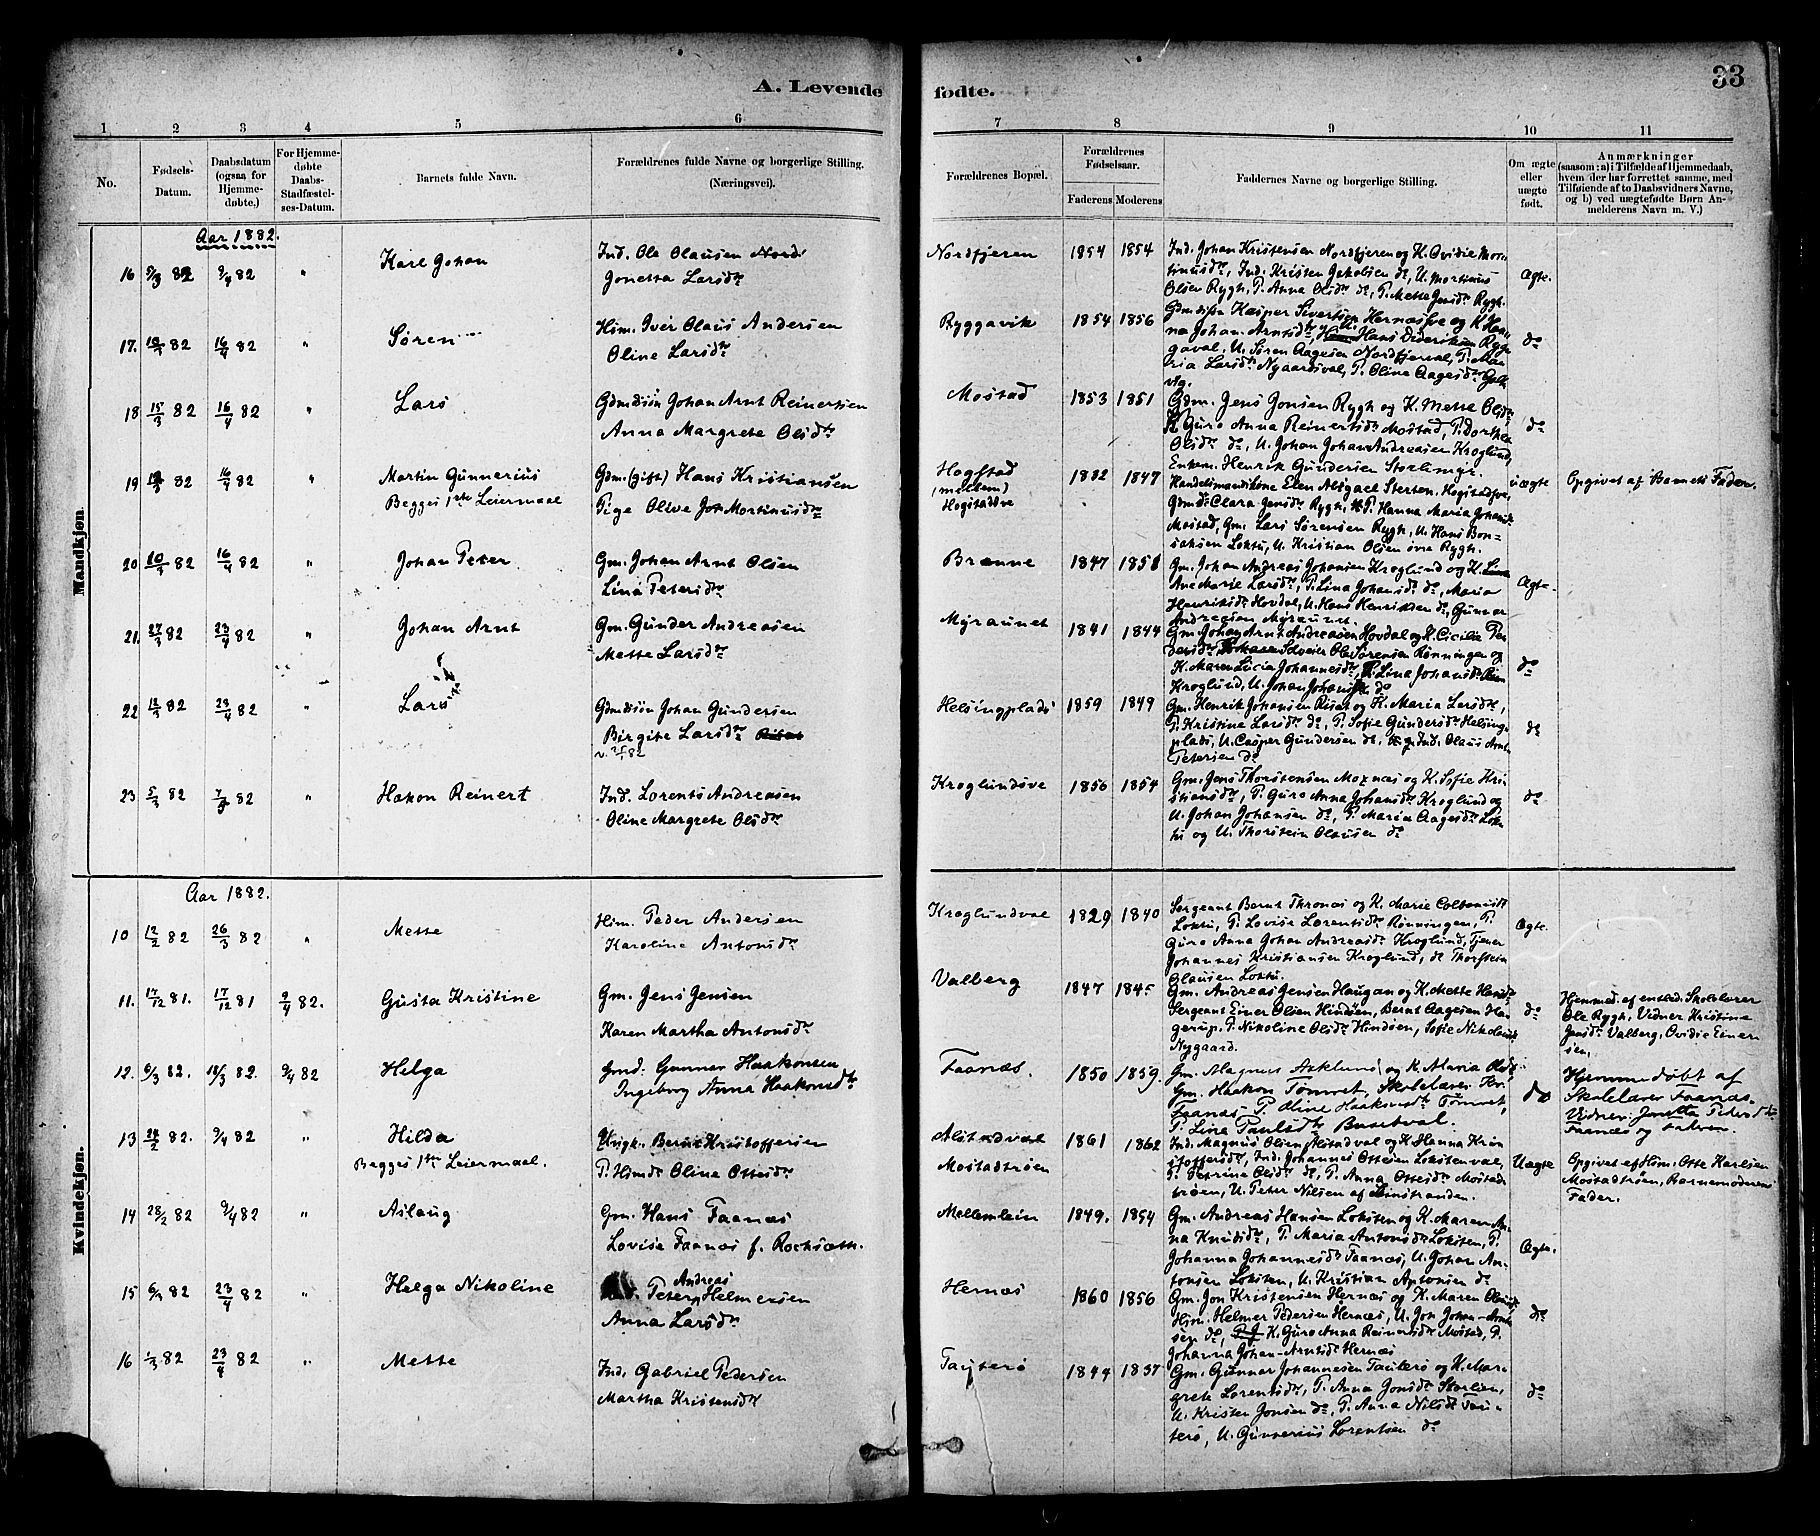 A. Levende fødte. 33
1 2 3 4 5 6 7 8 9 10 11
No.
Fødsels-Datum.
Daabsdatum (ogsaa for Hjemme-døbte,)
For Hjemme-døbte Daabs-Stadfæstel-ses-Datum.
Barnets fulde Navn.
Forældrenes fulde Navne og borgerlige Stilling.
(Næringsvei).
Forældrenes Bopæl.
Forældrenes Fødselsaar.
Faderens Moderens
Faddernes Navne og borgerlige Stilling.
Om ægte eller uægte født.
Anmærkninger
(saasom: a) i Tilfælde af Hjemmedaab,
hvem der har forrettet samme, med
Tilføiende af to Daabsvidners Navne,
og b) ved uægtefødte Børn An-
melderens Navn m. V.)
Mandkjøn.
Aar 1882.
16 5/3 82 9/4 82 " Karl Johan
Ind. Ole Olausen Nord
Jonetta Larsdtr
Nordfjeren 1854 1854
Ind. Johan Kristensen Nordfjeren og K. Ovidie Mor-
tinusdtr, Ind. Kristen Jakobsen do, U. Mortinus
Olsen Rygh, P. Anna Olsdtr do, P. Mette Jensdtr Rygh.
Ægte.
17. 82 16/4 82 " Søren
Him. Iver Olaus Andersen
Oline Larsdtr
Ryggavik 1854 1856
na Johan Arntsdtr, Hans Dideriksen Ryg-
gaval, U. Søren Aagesen Nordfjerval, P. Ma-
ria Larsdtr Nygaardsval, P. Oline Aagesdtr
do
18 15/3 82 16/4 82 " Lars
Gdmdsøn Johan Arnt Reinertsen
Anna Margrete Olsdtr
Mostad 1853 1851
Gdm. Jens Jonsen Rygh og K. Mette Olsdtr,
Guro Anna Reinertsdtr Mostad, P. Dorthea
Olsdtr do, U. Johan Johan Andreasen Kroglund,
Enkem. Henrik Gundersen Storlimyr.
do
19 82 16/4 82 " Martin Gunnerius
Begges 1ste Leiermaal
Gdm. (gift) Hans Kristiansen
Pige Olive Jon Mortinusdtr
Hogstad
(mellem)
Hogstadsve
1832 1847
Handelsmandskone Elen Abigael Sterten, Hogstadsve,
Clara Jensdtr Rygh, P. Hanna Maria Johansdtr
Mostad, Gm. Lars Sørensen Rygh, U. Hans Bon-
saksen Loktu, U. Kristian Olsen øvre Rygh.
uægte Opgivet af Barnets Fader.
20 10/3 82 16/4 82 " Johan Peter
Gm. Johan Arnt Olsen
Lina Petersdtr
Brænne 1847 1851
Gm. Johan Andreas Johansen Kroglund og K.
Ane Marie Larsdtr, P. Lina Johansdtr do, Maria
Henriksdtr Hovdal, U. Hans Henriksen do, Gunnar
Andreasen Myraunet.
Ægte.
21. 27/3 82 23/4 82 " Johan Arnt
Gm. Gunder Andreasen
Mette Larsdtr
Myraunet 1841 1844
Gm. Johan Arnt Andreasen Hovdal og K. Cicilia Pe-
dersdtr, Selveier Ole Sørensen Rønningen og
K. Maren Lucia Johannesdtr, P. Lina Johansdtr
Kroglund, U. Johan Johansen do
do
22 12/3 82 23/4 82 " Lars
Gdmdsøn Johan Gundersen
Birgite Larsdtr
Helsingplads 1859 1849
Gm. Henrik Johansen Risat og K. Maria Larsdtr,
P. Kristine Larsdtr do, P. Sofie Gundersdtr Helsing-
plads, U. Casper Gundersen do, Ind. Olaus Arnt
Petersen do
do
23 5/3 82 82 " Hakon Reinert
Ind. Lorents Andreasen
Oline Margrete Olsdtr
Kroglundsve 1856 1854
Gm. Jens Thorstensen Moxnæs og K. Sofie Kri-
stiansdtr, P. Guro Anna Johansdtr Kroglund og
U. Johan Johansen do, P. Maria Aagesdtr Lok-
tu og U. Thorstein Olausen do
do
Kvindekjøn.
Aar 1882.
10 12/2 82 26/3 82 " Mette
Him. Peder Andersen
Karoline Antonsdtr
Kroglundval 1829 1840
Sergeant Bernt Thronæs og K. Marie
Loktu, P. Lovise Lorentsdtr Rønningen, P.
Guro Anna Johan Andreasdtr Kroglund, Tjener
Johannes Kristiansen Kroglund, do Thorstein
Olausen Loktu.
Ægte.
11. 17/12 81. 17/12 81 9/4 82. Gusta Kristine
Gm. Jens Jensen
Karen Martha Antonsdtr
Valberg 1847 1845
Gm. Andreas Jensen Haugan og K. Mette Hansdtr
Sergeant Einer Olsen Hindøen, Bernt Aagesen Ha-
gerup, P. Nikoline Olsdtr Hindøen, Sofie Nikolaisdtr
Nygaard.
do
Hjemmed. af entled. Skolelærer
Ole Rygh, Vidner Kristine
Jensdtr Valberg, Ovidie Einer-
sen.
12. 6/3 82. 18/3 82. 9/4 82 Helga
Gmd. Gunnar Haakonsen
Ingeborg Anna Haaksmdtr
Faanæs. 1850 1859.
Gm. Magnus Asklund og K. Maria
Gm. Haakon Tømret, Skolelærer Kr.
Faanæs. P. Oline Haaksmdtr Tømret,
P. Lina Paulsdtr Busetval.
do
Hjemmedøbt af
Skolelærer Faanæs.
Vidner: Jonetta Petersdtr
Faanæs og Faderen.
13 24/2 82. 9/4 82 " Hilda
Begges 1ste Leiermaal.
Ungk. Bernt Kristoffersen
P. Himdtr Oline Ottesdtr
Alstadval
Mostadtrøen
1861 1862
Ind. Magnus Olsen Alstadval og K. Hanna Kri-
stoffersdtr, Ind. Johannes Ottesen Lokstenval,
P. Petrine Olsdtr do, P. Anna Ottesdtr Mostad-
trøen, U. Peter Nilsen af Leinstranden.
Uægte
Opgivet af Him. Otte Karlsen
Mostadtrøen, Barnemoderens
Fader.
14 28/2 82 9/4 82 " Aslaug
Gm. Hans Faanæs
Lovise Faanæs f. Rochsæth.
Mellemlein 1849. 1854
Gm. Andreas Hansen Loksten og K. Maren An-
na Knudsdtr, P. Maria Antonsdtr Loksten, P.
Johanna Johannesdtr Faanæs, U. Johan An-
tonsen Loksten, U. Kristian Antonsen do
Ægte.
15 82 23/4 82 " Helga Nikoline
Peter Andreas Helmersen
Anna Larsdtr
Hernæs 1860 1856
Gm. Jon Kristensen Hernæs og K. Maren
Him. Helmer Pedersen Hernæs, U. Jon Johan-Arnt-
sen do, K. Guro Anna Reinertsdtr Mostad, P.
Johanna Johan-Arntsdtr Hernæs
do
16 1/3 82 23/4 82 " Mette
Ind. Gabriel Pedersen
Martha Kristensdtr
Tauterø 1844 1837
Gm. Gunnar Johannesen Tauterø og K. Mar-
grete Lorentsdtr, P. Anna Jonsdtr Storlien,
U. Kristen Jonsen do, P. Anna Nilsdtr Tau-
terø, U. Gunnerius Lorentsen do
do